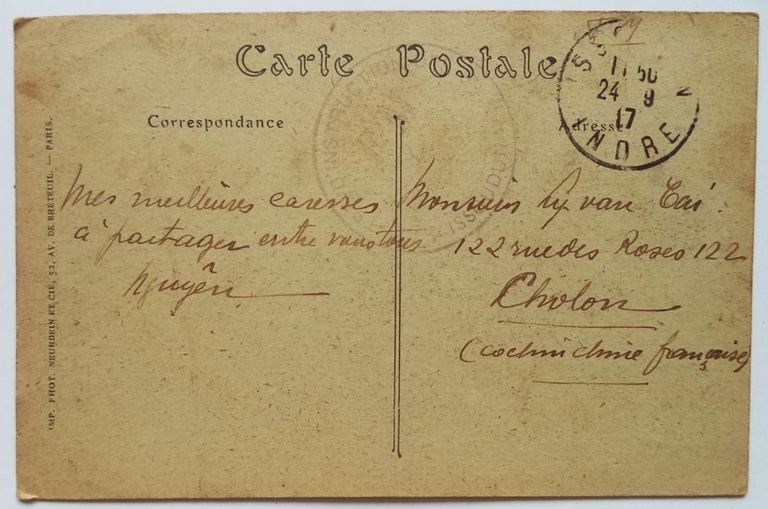 Carte Postale
Correspondance
Adresse
ISS
11 50
24 9
17
INDRE
ISSOUDUN
Mes meilleures caresses
à partager entre vous tous
Nguyên
Monsieur Ly van Tai
122 rue des Roses 122
Cholon
(Cochinchine française)
IMP. PHOT. NEURDEIN ET CIE, 52, AV. DE BRETEUIL. — PARIS.